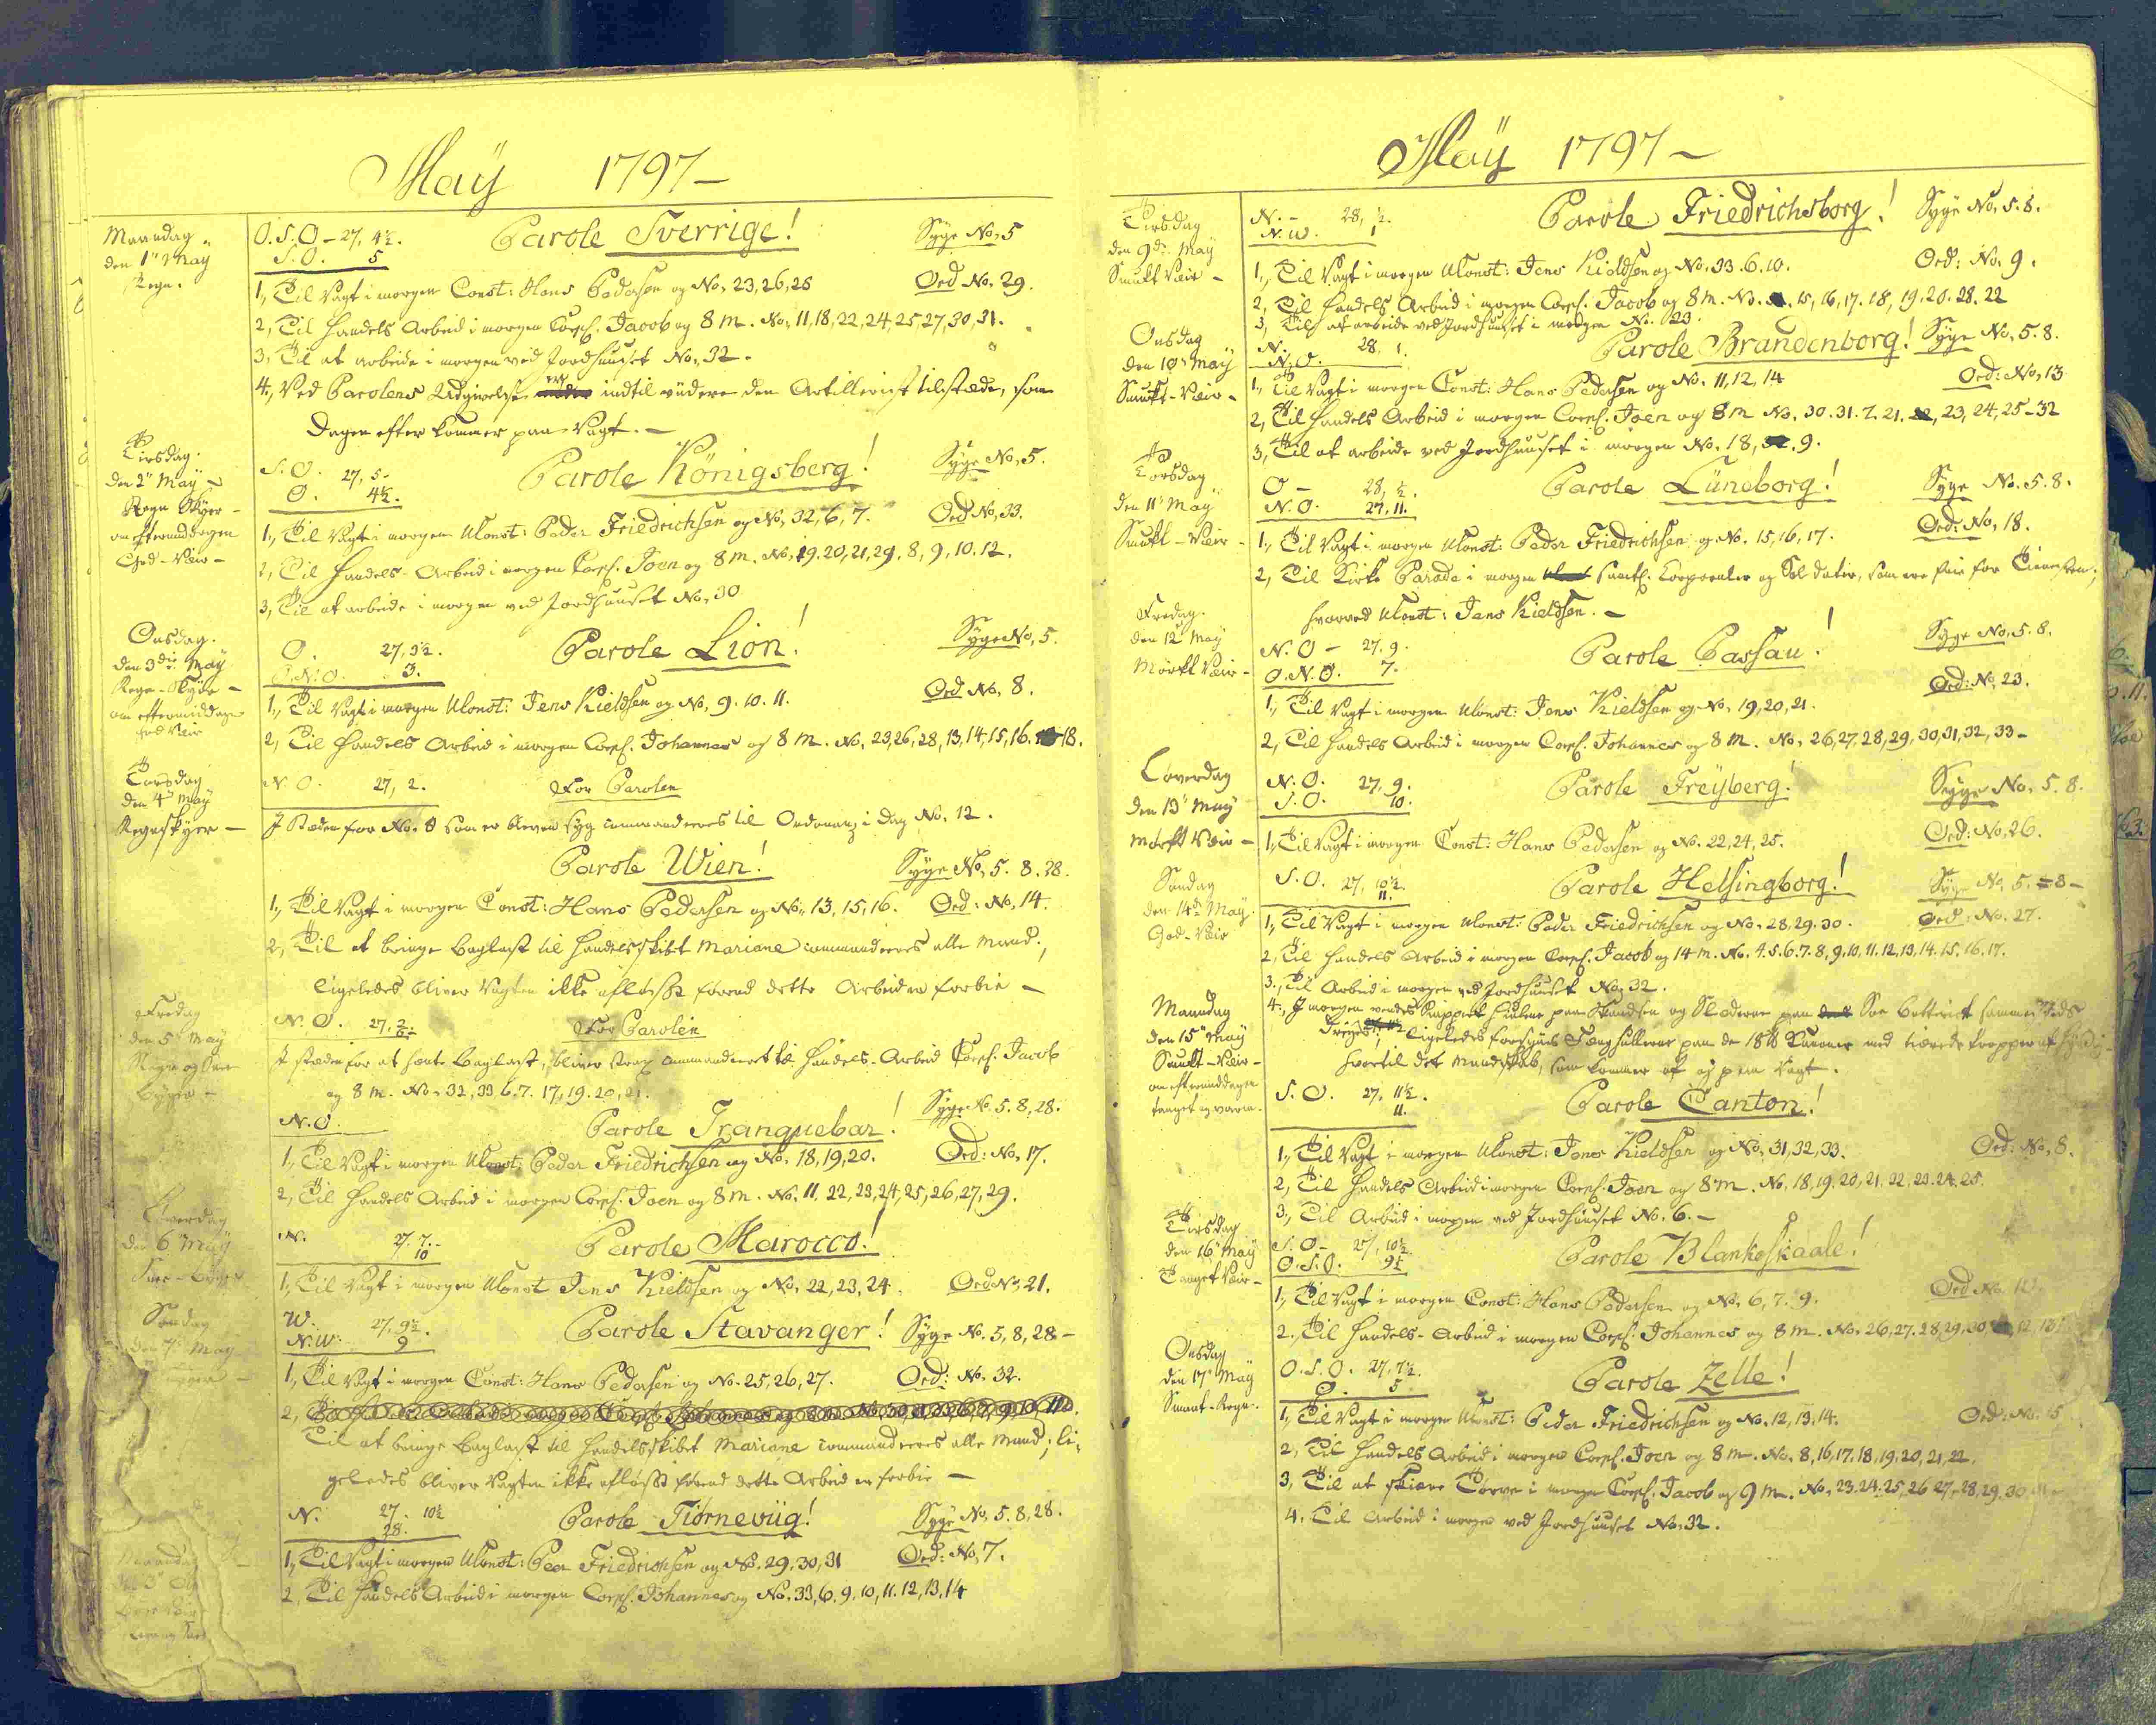 Maÿ 1797 –
Maandag
den 1ste May
Regn.
O.S.O – 27, 4½.
S.O. 5
Parole Sverrige!
Syge No, 5
1, Til Vagt i morgen Const: Hans Pedersen og No, 23, 26, 28
Ord No, 29.
2, Til Handels Arbeid i morgen Corp. Jacob og 8 m. No, 11, 18, 22, 24, 25, 27, 30, 31.
3, Til at arbeide i morgen ved Jordhuuset No, 32.
4, Ved Parolens Udgivelse indtil viidere den Artillerist tilstæde, som
Dagen efter kommer paa Vagt. –
Tirsdag.
den 2den May –
Regn Skyer –
om eftermiddagen
God – Veir –
S.O. 27, 5 –
O. 4½.
Parole Königsberg!
Syge No, 5.
1, Til Vagt i morgen Uconst: Peder Friedrichsen og No, 32, 6, 7.
Ord No, 33.
2, Til Handels-Arbeid i morgen Corp. Joen og 8 m. No, 19. 20, 21, 29, 8, 9, 10. 12.
3, Til at arbeide i morgen ved Jordhuuset No, 30
Onsdag.
den 3die May
Regn-Skyer –
om eftermiddagen
god Veir
O. 27, 3½.
O.N.O. 3.
Parole Lion!
Syge No, 5.
1, Til Vagt i morgen Uconst: Jens Kieldsen og No, 9. 10. 11.
Ord No, 8.
2, Til Handels Arbeid i morgen Corp. Johannes og 8 m. No, 23, 26, 28, 13, 14, 15, 16. 18.
Torsdag
den 4de May
Regnskyer –
N.O. 27, 2.
For Parolen
I Stæden for No. 8 som er bleven syg commanderes til Ordonanz i Dag No, 12.
Parole Wien!
Syge No, 5. 8. 28.
1, Til Vagt i morgen Const: Hans Pedersen og No, 13, 15, 16.
Ord: No, 14.
2, Til at bringe Baglast til Handelsskibet Mariane commanderes alle Mand;
ligeledes bliver Vagten ikke afløst førend dette Arbeid er forbie –
Fredag
den 5te May
Regn og Snee
Byger –
N.O. 27, 2
For Parolen
I stæden for at hente Baglast, bliver strax commanderet til Handels-Arbeid Corp. Jacob
og 8 m. No, 32, 33, 6. 7. 17, 19. 20, 21.
N.O.
Parole Tranquebar!
Syge No 5. 8, 28.
1, Til Vagt i morgen Uconst: Peder Friedrichsen og No, 18, 19, 20.
Ord: No, 17.
2, Til Handels Arbeid i morgen Corp. Joen og 8 m. No, 11, 22, 23, 24, 25, 26, 27, 29.
Løverdag
den 6te May
Snee-Byger
N. 27, 7. –
10
Parole Marocco!
1, Til Vagt i morgen Uconst Jens Kieldsen og No, 22, 23, 24.
Ord No, 21.
Søndag
den 7de May
W. 27, 9½.
N.W: 9
Parole Stavanger!
Syge No. 5, 8, 28 –
1, Til Vagt i morgen Const: Hans Pedersen og No. 25, 26, 27.
Ord: No. 32.
2,
Til at bringe Baglast til Handelsskibet Mariane commanderes alle Mand; li-
geledes bliver Vagten ikke afløst førend dette Arbeid er forbie –
Maandag
N. 27. 10½
28.
Parole Tiörneviig!
Syge No, 5. 8, 28.
1, Til Vagt i morgen Uconst: Peer Friedrichsen og No. 29, 30, 31
Ord: No, 7.
2, Til Handels Arbeid i morgen Corp. Johannes og No. 33, 6, 9, 10, 11. 12, 13, 14
Maÿ 1797 –
Tirsdag
den 9de May
Smukt Veir –
N. – 28, ½.
N.W. 1
Parole Friedrichsborg!
Syge No, 5. 8.
1, Til Vagt i morgen Uconst: Jens Kieldsen og No. 33. 6. 10.
Ord: No, 9.
2, Til Handels Arbeid i morgen Corp. Jacob og 8 m. No. 15, 16, 17. 18, 19, 20. 28. 22
3, Til at arbeide ved Jordhuuset i morgen No. 23
Onsdag
den 10de May
Smukt-Veir –
N. 28, 1.
N.O.
Parole Brandenborg!
Syge No, 5. 8.
1, Til Vagt i morgen Const: Hans Pedersen og No. 11, 12, 14
Ord: No, 13
2, Til Handels Arbeid i morgen Corp. Joen og 8 m No. 30. 31. 7. 21. 23, 24, 25 – 32
3, Til at arbeide ved Jordhuuset i morgen No. 18, 9.
Torsdag
den 11te May
Smukt – Veir –
O – 28, ½.
N.O. 27, 11.
Parole Lüneborg!
Syge No. 5. 8.
1, Til Vagt i morgen Uconst: Peder Friedrichsen og No. 15, 16, 17.
Ord: No, 18.
2, Til Kirke Parade i morgen samtl. Corporaler og Soldater, som ere frie for Tienesten;
hvorved Uconst: Jens Kieldsen. –
Fredag.
den 12te May
Mørkt Veir –
N.O – 27. 9.
O.N.O. 7.
Parole Passau!
Syge No, 5. 8.
1, Til Vagt i morgen Uconst: Jens Kieldsen og No, 19, 20, 21.
Ord: No, 23.
2, Til Handels Arbeid i morgen Corp. Johannes og 8 m. No, 26, 27, 28, 29, 30, 31, 32, 33 –
Løverdag
den 13de May
Mørkt Veir –
N.O. 27, 9.
S.O. 10.
Parole Freÿberg!
Syge No, 5. 8.
1, Til Vagt i morgen Const: Hans Pedersen og No. 22, 24, 25.
Ord: No, 26.
Søndag
den 14de May
God-Veir
S.O. 27, 10½.
11.
Parole Helsingborg!
Syge No, 5. 8 –
1, Til Vagt i morgen Uconst: Peder Friedrichsen og No. 28, 29. 30.
Ord: No. 27.
2, Til Handels Arbeid i morgen Corp. Jacob og 14 m. No. 4. 5. 6. 7. 8, 9, 10, 11. 12, 13, 14. 15. 16. 17.
3, Til Arbeid i morgen ved Jordhuuset No, 32.
4, I morgen vendes paa Skandsen og Sloderne paa Søe batteriet sammesteds
ligeledes forsynes Fænghullerne paa de 18 Kanoner med
hvortil det Mandskab, som kommer af og paa Vagt.
Maandag
den 15de May
Smukt – Veir –
om eftermiddagen
taaget og varm.
S.O. 27, 11½.
11.
Parole Canton!
1, Til Vagt i morgen Uconst: Jens Kieldsen og No, 31, 32, 33.
Ord: No, 8.
2, Til Handels Arbeid i morgen Corp. Joen og 8 m. No, 18, 19, 20, 21, 22, 23. 24. 25.
3, Til Arbeid i morgen ved Jordhuuset No. 6. –
Tirsdag
den 16de May
Taaget Veir –
S.O – 27, 10½.
O.S.O. 9½
Parole Blankoskaale!
1, Til Vagt i morgen Const: Hans Pedersen og No, 6, 7. 9.
Ord No. 10.
2, Til Handels-Arbeid i morgen Corp. Johannes og 8 m. No. 26, 27. 28, 29, 30 12, 13.
Onsdag
den 17de May
Smaat-Regn.
O.S.O. 27, 7½.
O. 5
Parole Zelle!
1, Til Vagt i morgen Uconst: Peder Friedrichsen og No, 12, 13, 14.
Ord: No. 15
2, Til Handels Arbeid i morgen Corp. Joen og 8 m. No. 8, 16, 17, 18, 19, 20, 21, 22.
3, Til at skiære Tørve i morgen Corp. Jacob og 9 m. No, 23. 24. 25, 26 27, 28, 29. 30
4, Til Arbeid i morgen ved Jordhuuset No, 32.